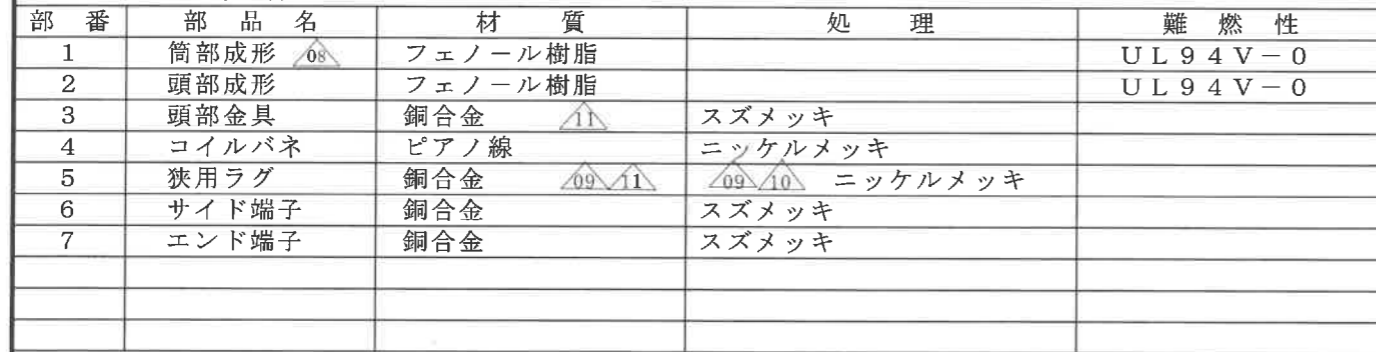 部 番 部 品 名 材 質 処 理 難 燃 性
1 筒部成形 08 フェノール樹脂 UL94V-0
2 頭部成形 フェノール樹脂 UL94V-0
3 頭部金具 銅合金 11 スズメッキ
4 コイルバネ ピアノ線 ニッケルメッキ
5 狭用ラグ 銅合金 09 11 09 10 ニッケルメッキ
6 サイド端子 銅合金 スズメッキ
7 エンド端子 銅合金 スズメッキ